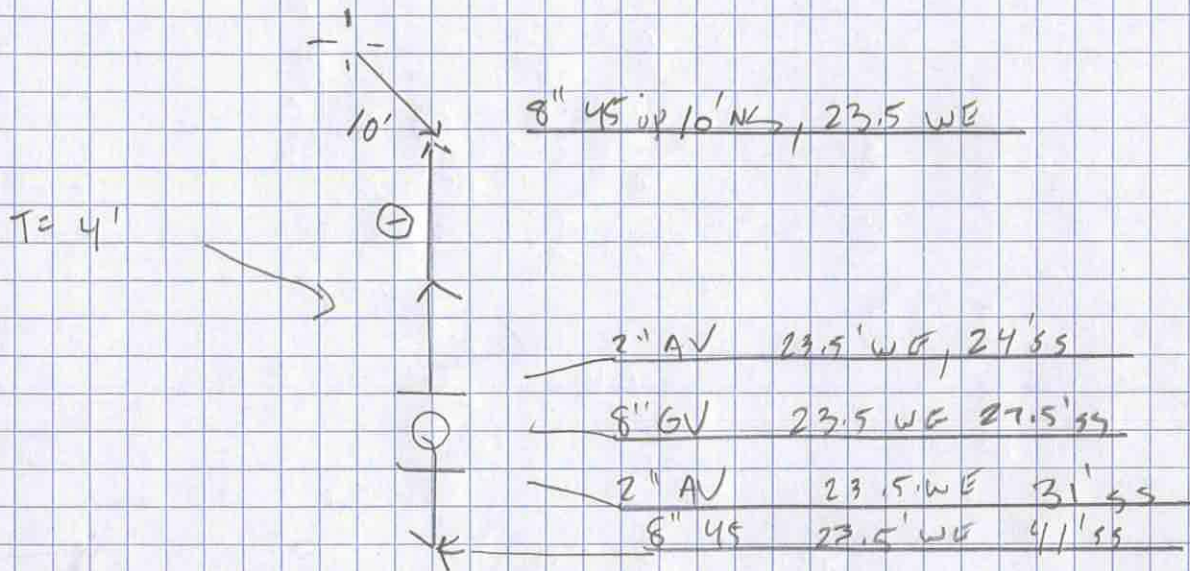 8" 45 up 10' NS, 23.5 WE
10'
T= 4'
2" AV 23.5' WE, 24' SS
8" GV 23.5 WE 27.5' SS
2" AV 23.5. WE 31' SS
8" 45 23.5' WE 41' SS